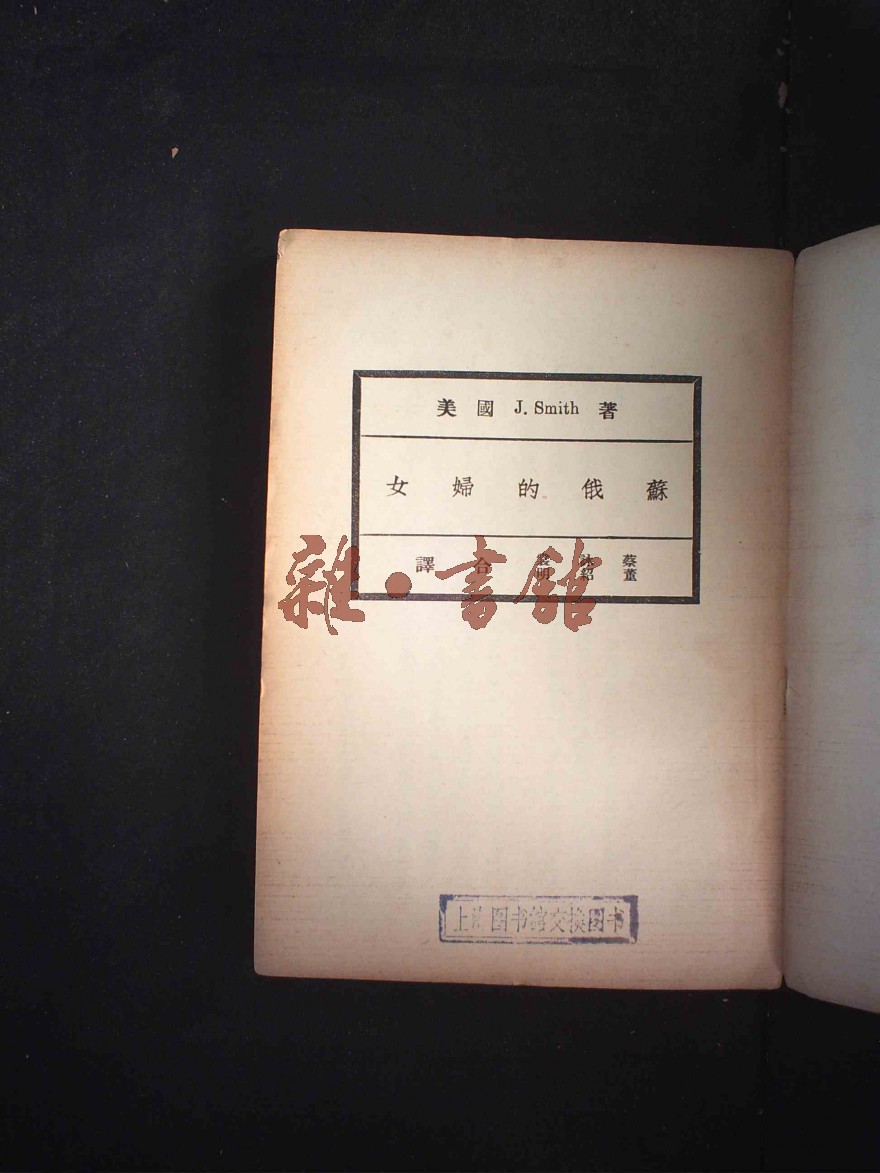 美國 J. Smith 著
蘇俄的婦女
蔡詠裳
董紹明
合譯
雜·書館
上海图书馆交换图书